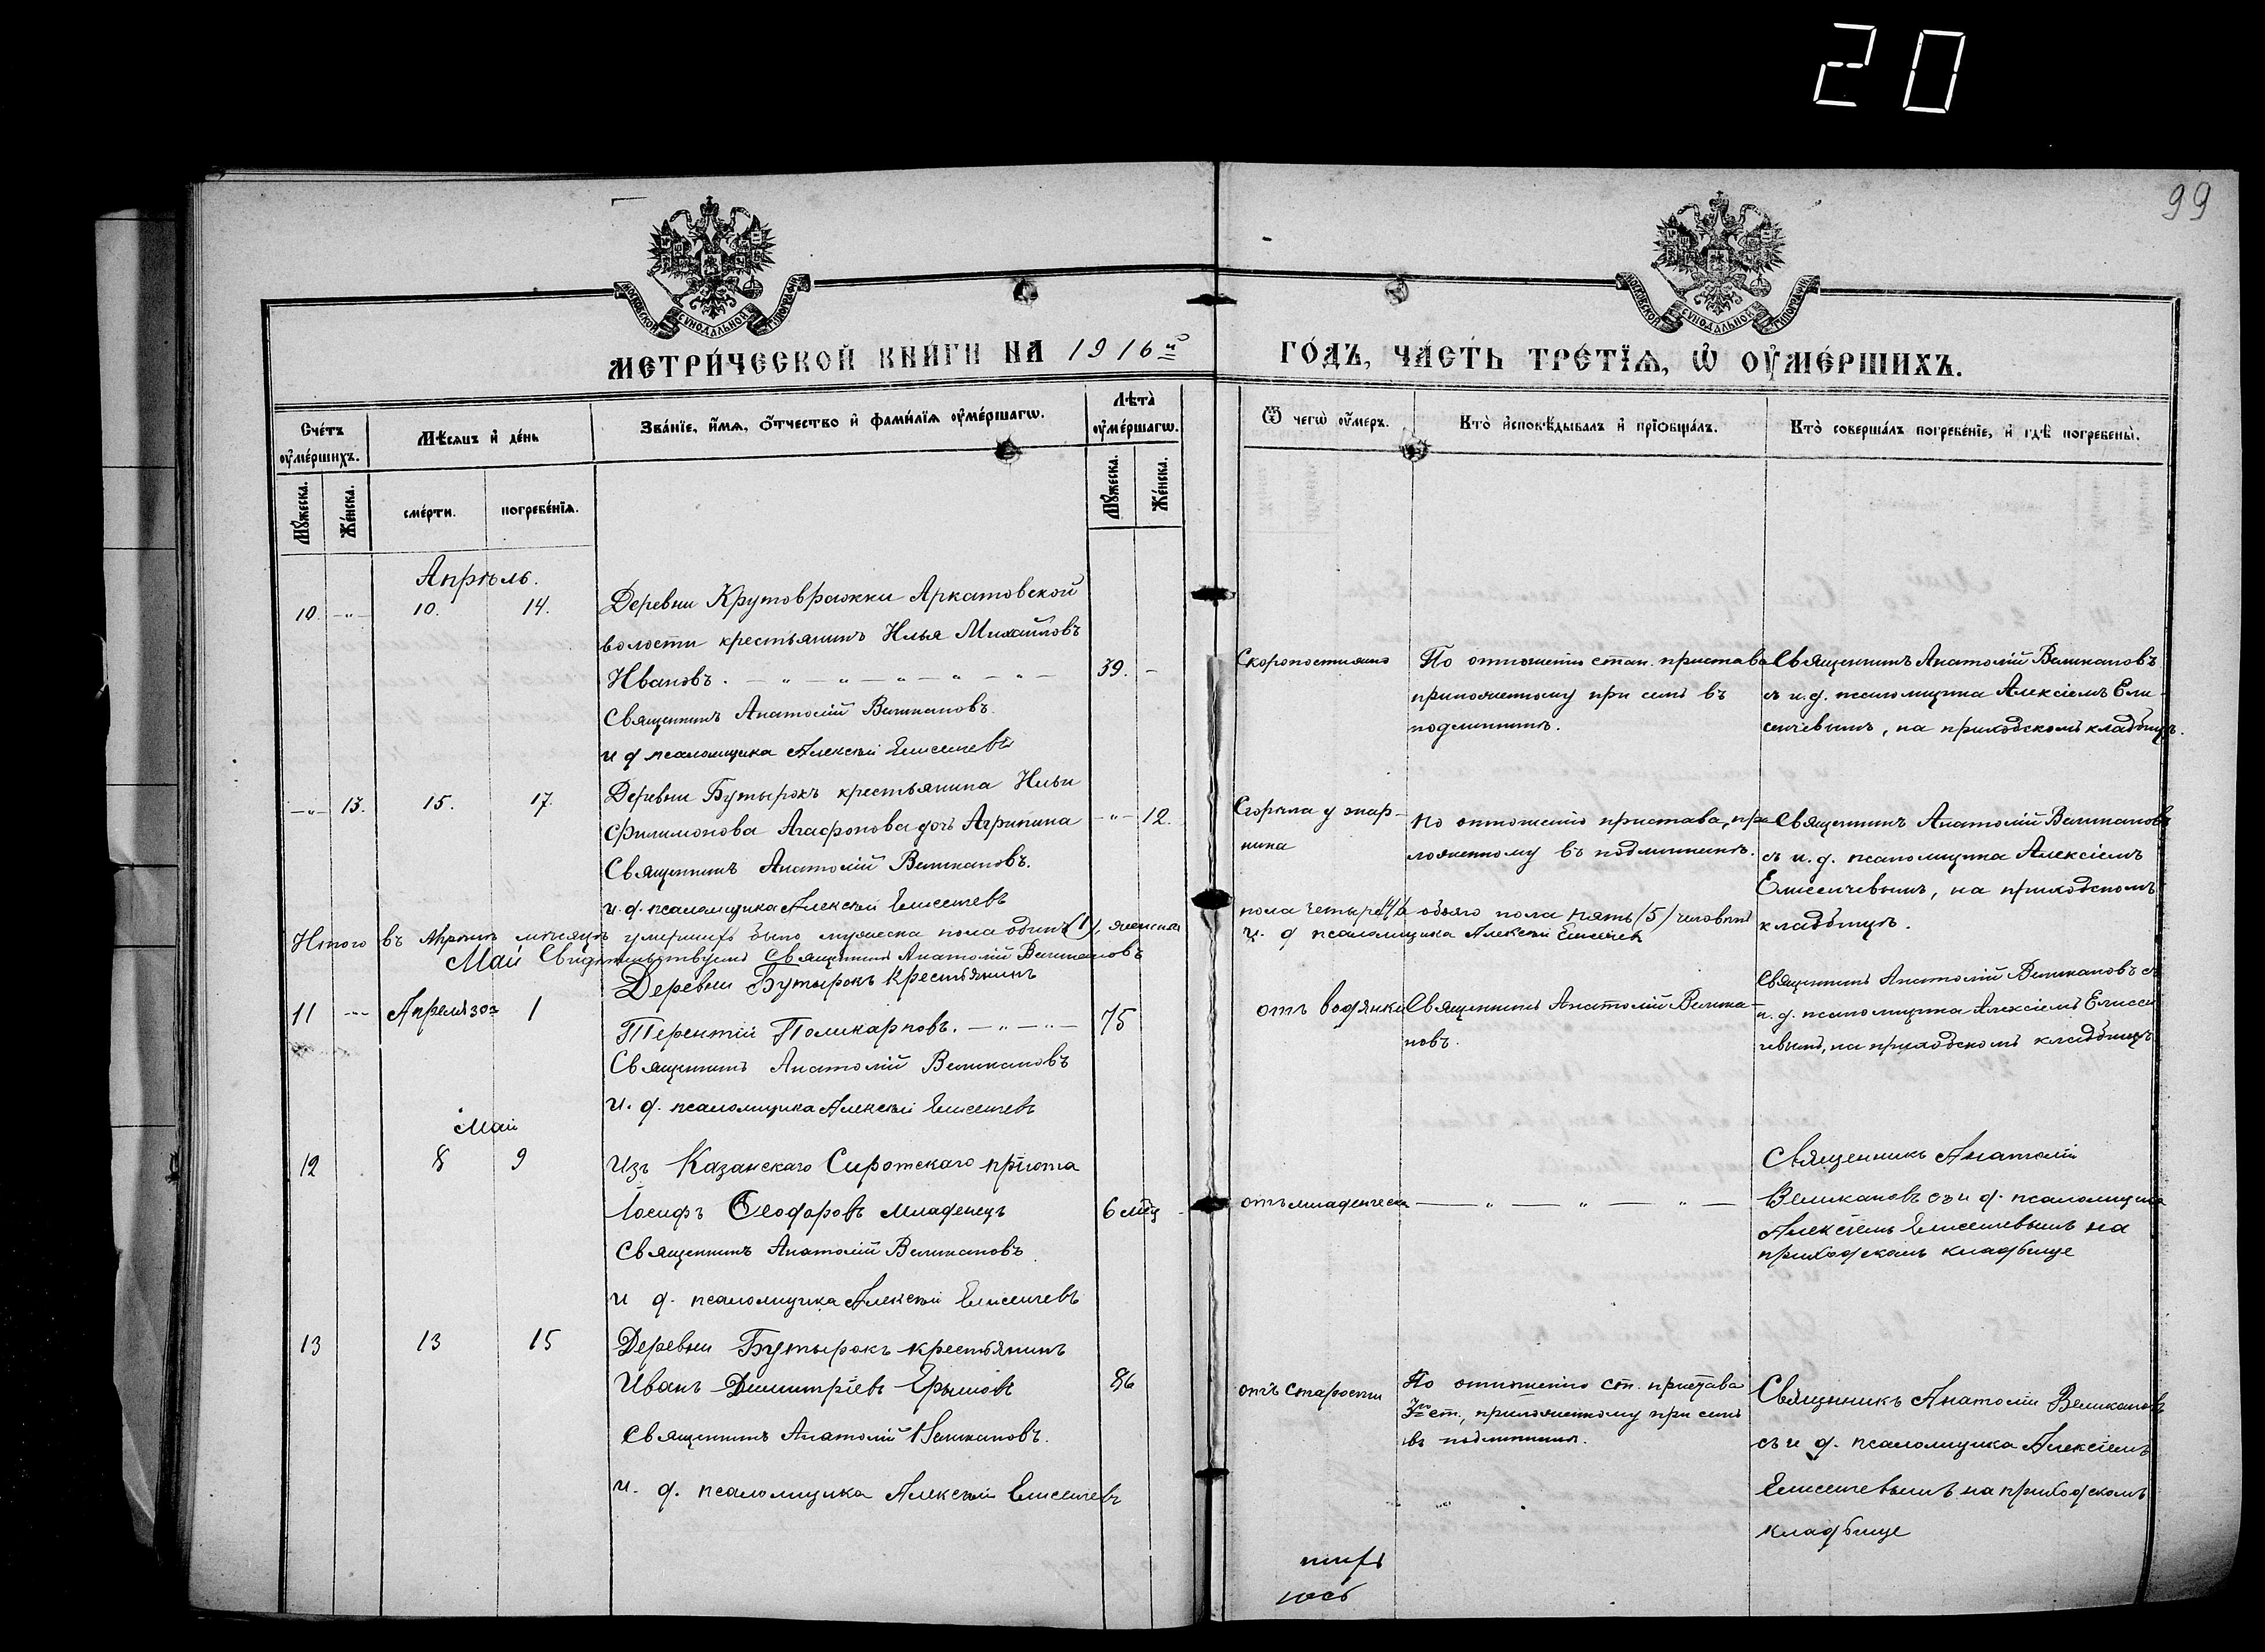 20
99
МОСКОВСКОЙ СУНОДАЛЬНОЙ ТИПОГРАФІИ
МОСКОВСКОЙ СУНОДАЛЬНОЙ ТИПОГРАФІИ
МЕТРИ́ЧЕСКОЙ КНИ́ГИ НА 1916й
ГО́ДЪ, ЧА́СТЬ ТРЕ́ТЇѦ, Ѡ ОУ҆МЕ́РШИХЪ.
Сче́тъ оу҆ме́ршихъ.
Мѣ́сѧцъ и҆ де́нь
Зва́нїе, и҆́мѧ, ѻ҆́тчество и҆ фами́лїѧ оу҆ме́ршагѡ.
Лѣ́та оу҆ме́ршагѡ.
Ѿ чегѡ̀ оу҆́меръ.
Кто̀ и҆сповѣ́дывалъ и҆ прїѡбща́лъ.
Кто̀ соверша́лъ погребе́нїе, и҆ гдѣ̀ погребены̀.
Му́жеска.
Же́нска.
сме́рти.
погребе́нїѧ.
Му́жеска.
Же́нска.
Апрѣль.
10. - " - 10. 14.
Деревни Крутовражки Аркатовской
волости крестьянинъ Илья Михайловъ
Ивановъ. - " - " - " - " - " -
39. -
Священникъ Анатолій Великановъ.
и д псаломщика Алексѣй Елисеичевъ
Скоропостижно
По отношенію стан. пристава
приложенному при семъ въ
подлинникѣ.
Священникъ Анатолій Великановъ
съ и.д. псаломщика Алексіемъ Ели-
сеичевымъ, на приходскомъ кладбищѣ.
- " - 13. 15. 17.
Деревни Бутырокъ крестьянина Ильи
Филимонова Агафонова дочь Агрипина
- " - 12.
Священникъ Анатолій Великановъ.
и.д. псаломщика Алексѣй Елисеичевъ
Сгорѣла у шар-
ника
По отношенію пристава, при-
ложенному въ подлинникѣ.
Священникъ Анатолій Великановъ
съ и.д. псаломщика Алексіемъ
Елисеичевымъ, на приходскомъ
кладбищѣ.
Итого въ Апрѣлѣ мѣсяцѣ умершихъ было мужеска пола одинъ (1), женска
пола четыре (4) обоего пола пять (5) человѣкъ
Свидѣтельствуемъ Священникъ Анатолій Великановъ
и. д псаломщика Алексѣй Елисеичевъ
Май
11 - - - Апреля 30го 1
Деревни Бутырокъ крестьянинъ
Терентій Поликарповъ. - " - " -
75
Священникъ Анатолій Великановъ
и. д. псаломщика Алексѣй Елисеичевъ
отъ водянки
Священникъ Анатолій Велика-
новъ.
Священникъ Анатолій Великановъ съ
и.д. псаломщика Алексіемъ Елисеи
чевымъ, на приходскомъ кладбищѣ
Май
12 8 9
Изъ Казанскаго Сиротскаго пріюта
Іосифъ Ѳеодоровъ младенецъ
6 мѣц
Священникъ Анатолій Великановъ
и д. псаломщика Алексѣй Елисеичевъ
отъ младенческ
- " - " - " -
Священникъ Анатолій
Великановъ съ и д. псаломщика
Алексіемъ Елисеичевымъ на
приходскомъ кладбище
13 13 15
Деревни Бутырокъ крестьянинъ
Иванъ Димитріевъ
86
Священникъ Анатолій Великановъ.
и. д. псаломщика Алексѣй Елисеичевъ
отъ старости
По отношенію ст. пристава
3го ст., приложенному при семъ
въ подлинникѣ.
Священникъ Анатолій Великановъ
съ и д. псаломщика Алексіемъ
Елисеичевымъ на приходскомъ
кладбище